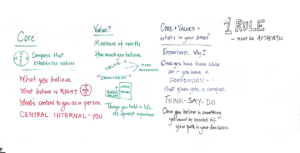 Core
Compass that
establishes values
What you believe
What believe is RIGHT
What's central to you as a person
CENTRAL - INTERNAL - YOU
Value?
Measure of worth
How much you believe
VALUE
Things you hold in life,
it's utmost importance
Core + Values =
what's in your
Importance. Why?
Once you have those ideas
set - you have a
FOUNDATION -
that gives you a compass.
THINK - SAY - DO
Once you believe in something
you won't be
your path is your decisions.
1 RULE
- must be AUTHENTIC